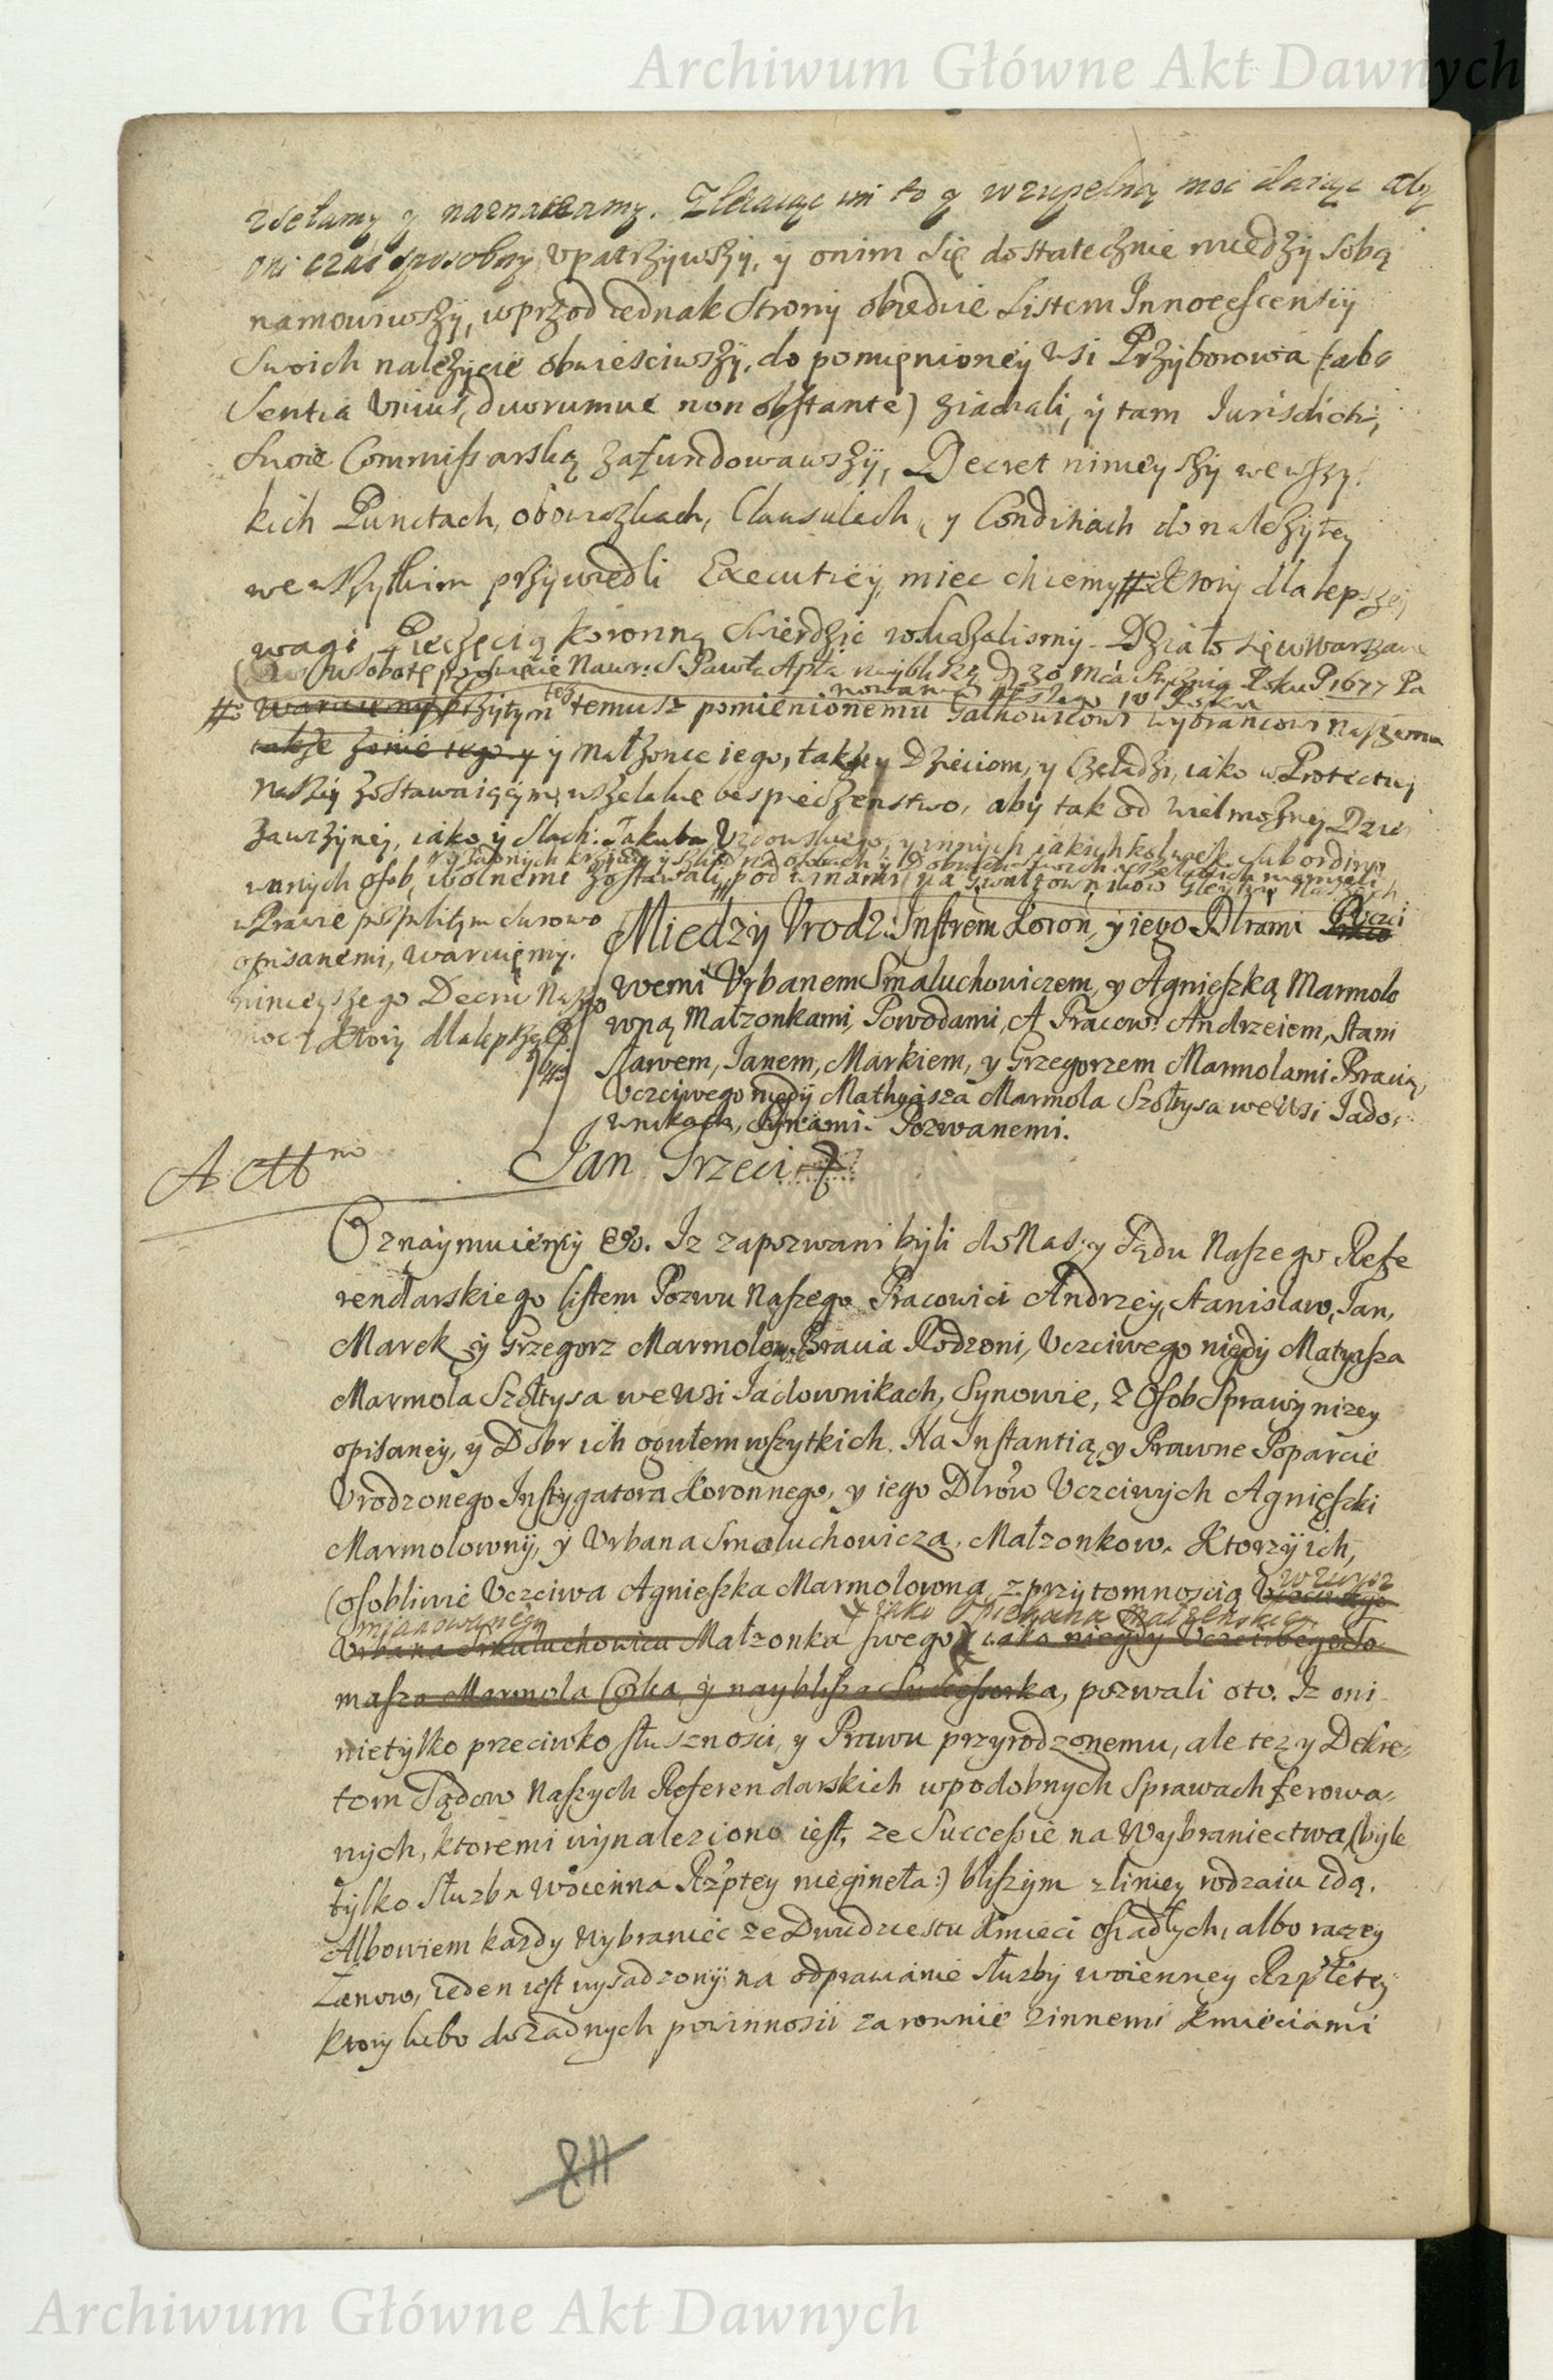 Archiwum Główne Akt Dawnych
zsełamy y naznaczamy. Zlecaiąc im to y wzupełną moc daiąc aby
oni czas sposobny upatrzywszy, y onim się dostatecznie miedzy sobą
namowiwszy, wprzod iednak Strony obiedwie Listem Innotescensiy
Swoich nalezycie obwiesciwszy, do pomięnioney wsi Przyborowia (: ab
Sentia vnius, duorumue non obstante) ziachali, y tam Iurisdictią
Swoie Commissarską zafundowawszy, Decret ninieyszy wewszy
kich Punctach, obowiązkach, Clausulach, y Conditiach do nalezytey
wewszytkim przywiedli Executiey, miec chcemy # Ktory dla lepszey
wagi Pieczęcią koronną stwierdzic roskazalismy. Działo się w Warszawie
w Sobotę po Swięcie Nawr: S. Pawła Apła naybliszą D. 30 Mca Stycznia Roku P. 1677 Pa
nowania Naszego III Roku
# Waruiemy przytym tez temusz pomienionemu Gałkowicowi wybrancowi naszemu
także żonie iego y y małzonce iego, takze y Dzieciom, y Czeladzi, iako w Protectiey
Naszey zostawaiącym, wszelakie bespieczenstwo, aby tak od wielmozney Dzie
zawczyney, iako y Slach: Jakuba Uzdowskiego, y innych iakichkolwiek subordino
wanych osob, wolnemi zostawali, pod winami na gwałtownikow Gleytow Naszych
w Prawie pospolitym surowo
opisanemi, waruięmy.
ninieyszego Decretu Naszego
mocą Ktory dla lepszey
Miedzy Vrodz: Instrem Koron, y iego Dlrami Uczci
wemi Vrbanem Smaluchowiczem, y Agnieszką Marmolo
wną Małzonkami, Powodami, A Pracow: Andrzeiem, Stani
sławem, Janem, Markiem, y Grzegorzem Marmolami Bracią,
Uczciwego niegdy Mathyasza Marmola Szołtysa we wsi Jado,
wnikach, Synami. Pozwanemi.
Actt<sup>m</sup>
Jan Trzeci
Oznaymuiemy &c. Iz zapozwani byli do Nas, y Sądu Naszego Refe
rendarskiego listem Pozwu Naszego Pracowici Andrzey, Stanislaw, Jan,
Marek y Grzegorz Marmolowie Bracia Rodzoni, Uczciwego niegdy Matyasza
Marmola Szołtysa we wsi Jadownikach, Synowie, z Osob Sprawy nizey
opisaney, y Dobr ich ogułem wszytkich. Na Instantią, y Prawne Poparcie
Vrodzonego Instygatora Koronnego, y iego Dlrow Uczciwych Agnięszki
Marmolowny, y Vrbana Smaluchowicza, Małzonkow. Ktorzy ich,
(osobliwie Uczciwa Agnieszka Marmolowna z przytomnoscią Uczciwego wzwysz
mianowanego iako Opiekuna Małzenskiego
Vrbana Smaluchowica Małzonka swego) iako niegdy Uczciwego To
masza Marmola Corka, y nayblisza Sukcessorka, pozwali oto. Iz oni
nietylko przeciwko słusznosci, y Prawu przyrodzonemu, ale tez y Dekre,
tom Sądow Naszych Referendarskich w podobnych Sprawach ferowa,
nych, ktoremi wynaleziono iest, ze Successie na Wybraniectwa (byle
tylko słuzba woienna Rzptey nieginęła:) bliszym z liniey rodzaiu idą.
Albowiem kazdy Wybraniec ze Dwudziestu Kmieci osiadłych, albo raczey
Łanow, ieden iest wysadzony na odprawianie słuzby woienney Rzpltey
ktory lubo do zadnych powinnosci zarownie zinnemi kmieciami
Archiwum Główne Akt Dawnych